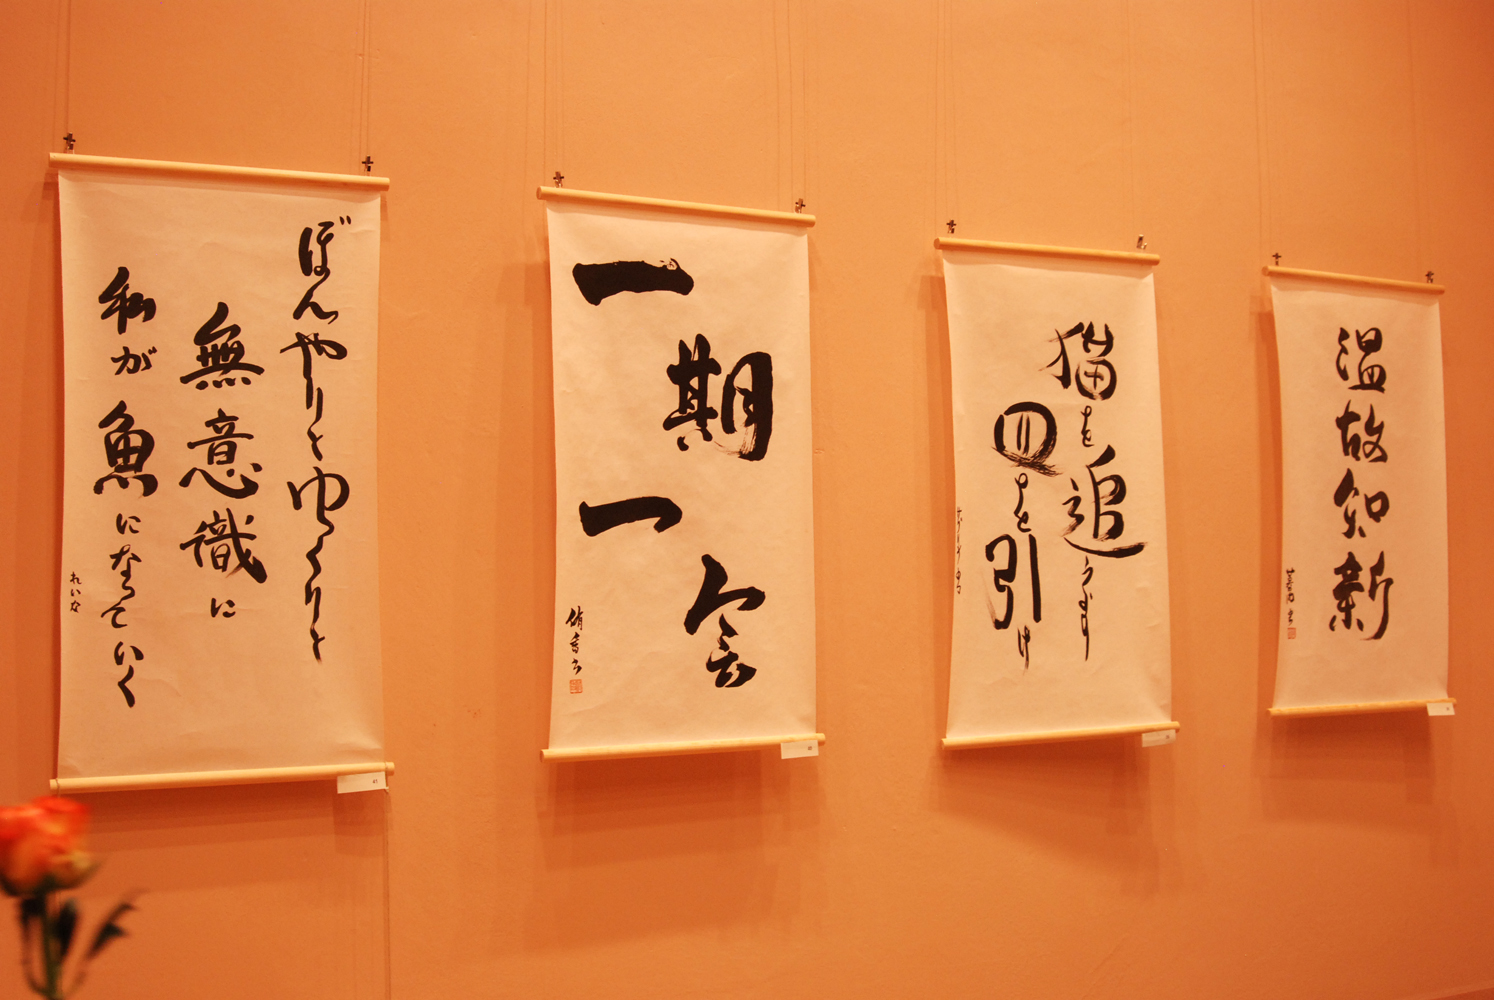 ぼんやりとゆっくりと
無意識に
私が魚になっていく
れいな
一
期
一
会
猫を追うより
皿を引け
温故知新